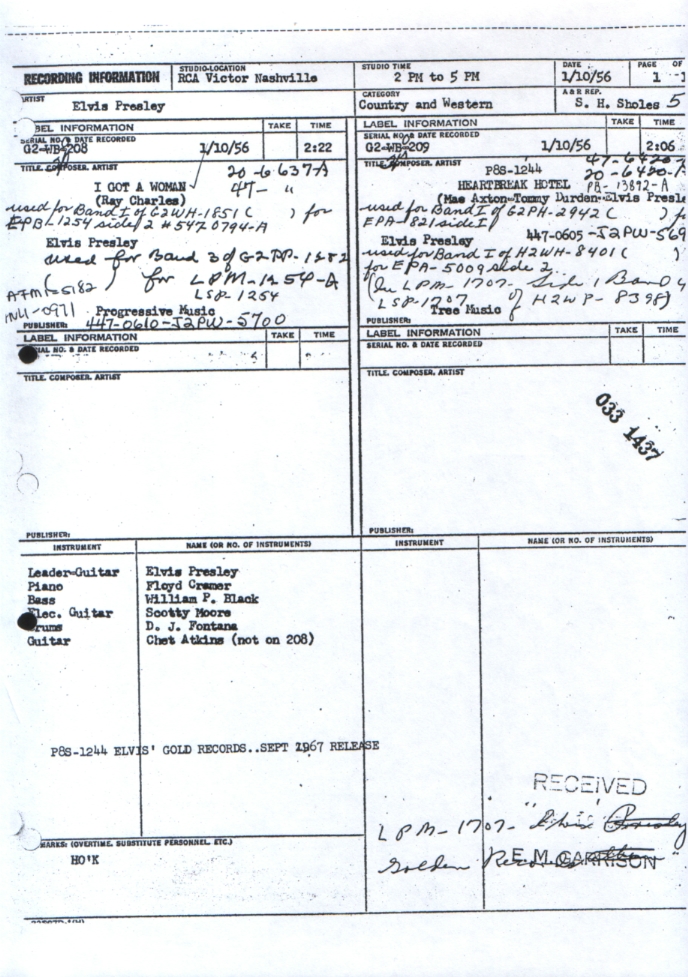 RECORDING INFORMATION
STUDIO-LOCATION
RCA Victor Nashville
STUDIO TIME
2 PM to 5 PM
DATE
1/10/56
PAGE OF
1 1
Elvis Presley
CATEGORY
Country and Western
A & R REP.
S. H. Sholes 5
BEL INFORMATION TAKE TIME
SERIAL NO. & DATE RECORDED
G2-WB-208 1/10/56 2:22
TITLE, COMPOSER, ARTIST
20-6637-A
I GOT A WOMAN 47- "
(Ray Charles)
used for Band I of G2WH-1851 ( ) for
EPB-1254 side 2 # 547 0794-A
Elvis Presley
used for Band 3 of G2PP-1282
for LPM-1254-A
LSP-1254
Progressive Music
PUBLISHER: 447-0610-J2PW-5700
LABEL INFORMATION TAKE TIME
SERIAL NO. & DATE RECORDED
G2-WB-209 1/10/56 2:06
TITLE, COMPOSER, ARTIST
47-6420
20-6420-A
P8S-1244
HEARTBREAK HOTEL PB-13892-A
(Mae Axton-Tommy Durden-Elvis Presle
used for Band I of G2PH-2942 ( ) f
EPA-821 side I
Elvis Presley 447-0605-J2PW-569
used for Band I of H2WH-8401 (
for EPA-5009 side 2
(In LPM-1707- Side 1 Band 4
LSP-1707 of H2WP-8398)
Tree Music
PUBLISHER:
LABEL INFORMATION TAKE TIME
RIAL NO. & DATE RECORDED
TITLE, COMPOSER, ARTIST
PUBLISHER:
LABEL INFORMATION TAKE TIME
SERIAL NO. & DATE RECORDED
TITLE, COMPOSER, ARTIST
033 1437
PUBLISHER:
INSTRUMENT NAME (OR NO. OF INSTRUMENTS)
INSTRUMENT NAME (OR NO. OF INSTRUMENTS)
Leader-Guitar Elvis Presley
Piano Floyd Cramer
Bass William P. Black
Elec. Guitar Scotty Moore
rums D. J. Fontana
Guitar Chet Atkins (not on 208)
P8S-1244 ELVIS' GOLD RECORDS..SEPT 1967 RELEASE
RECEIVED
LPM-1707- Elvis Presley
Golden Records
E.M. GARRISON
MARKS: (OVERTIME, SUBSTITUTE PERSONNEL, ETC.)
HO'K